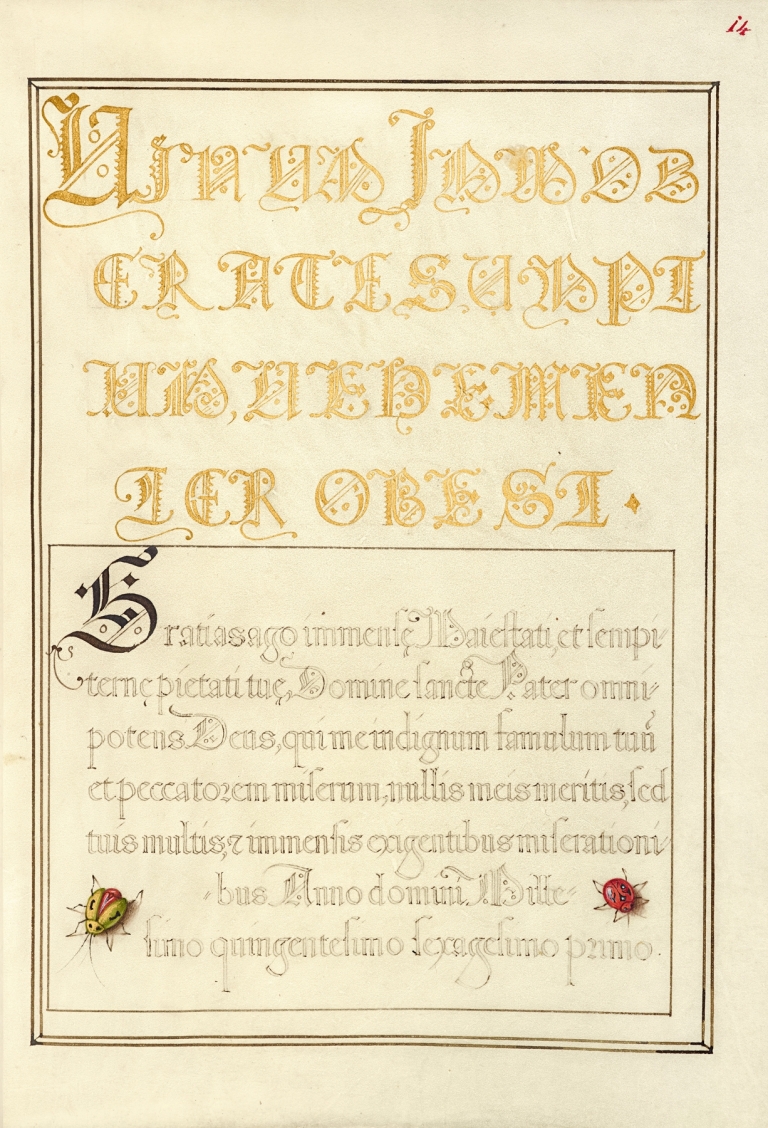 i4
UINUM IMMOD
ERATE SUMPT
UM, UEHEMEN
TER OBEST.
Gratias ago immensę Maiestati, et sempi-
ternę pietati tuę, Domine sancte Pater omni-
potens Deus, qui me indignum famulum tuũ
et peccatorem miserum, nullis meis meritis, sed
tuis multis, ⁊ immensis exigentibus miserationi-
-bus Anno domini Mille-
simo quingentesimo sexagesimo primo.